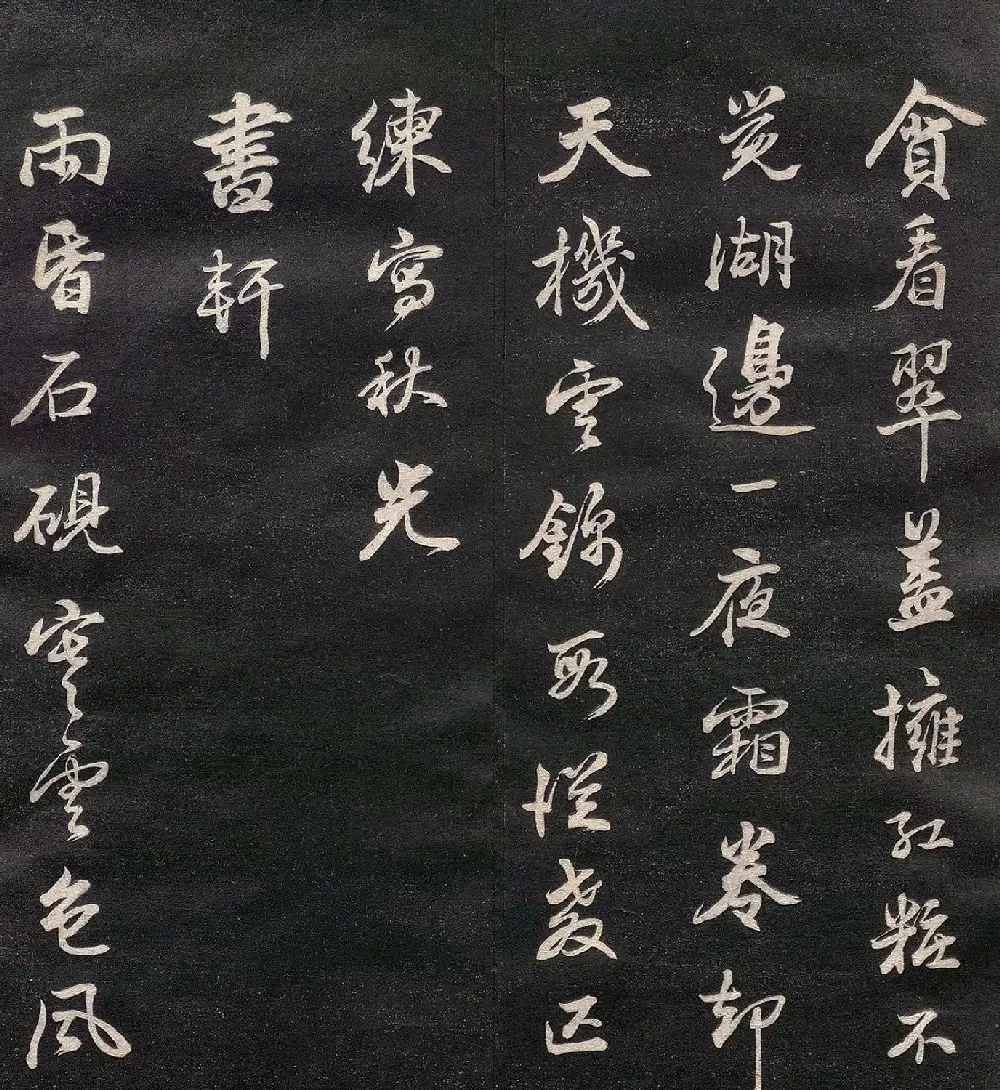 貪看翠蓋擁紅粧不
覺湖邊一夜霜卷却
天機雲錦段從教匹
練寫秋光
書軒
雨昏石硯寒雲色風